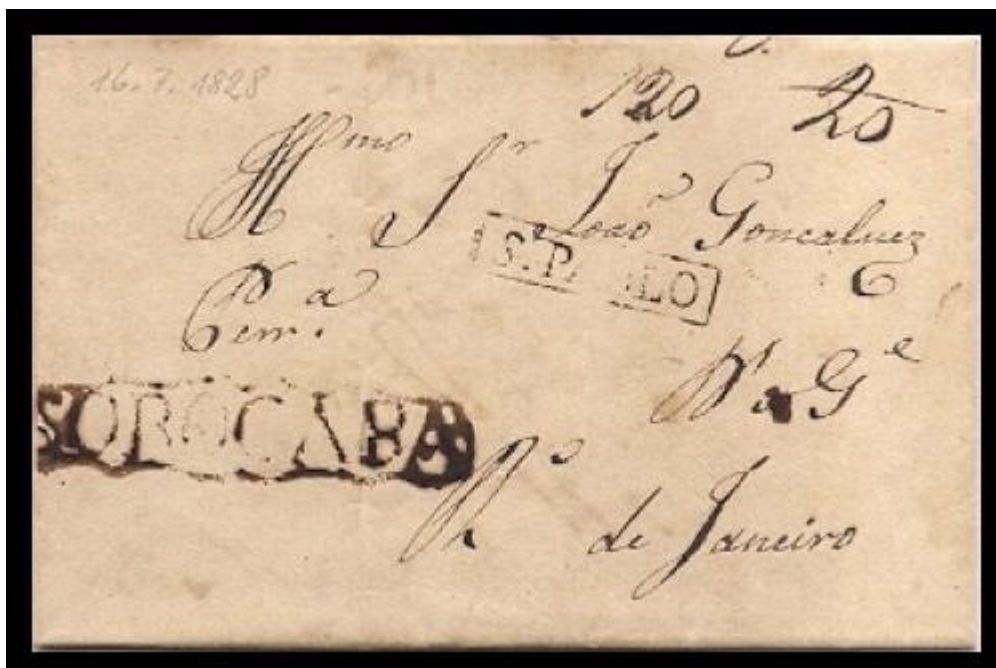 16.7.1828
120 20
Illmo Sr João Goncaluez
S. P LO
Perra
SOROCABA
Rº de Janeiro